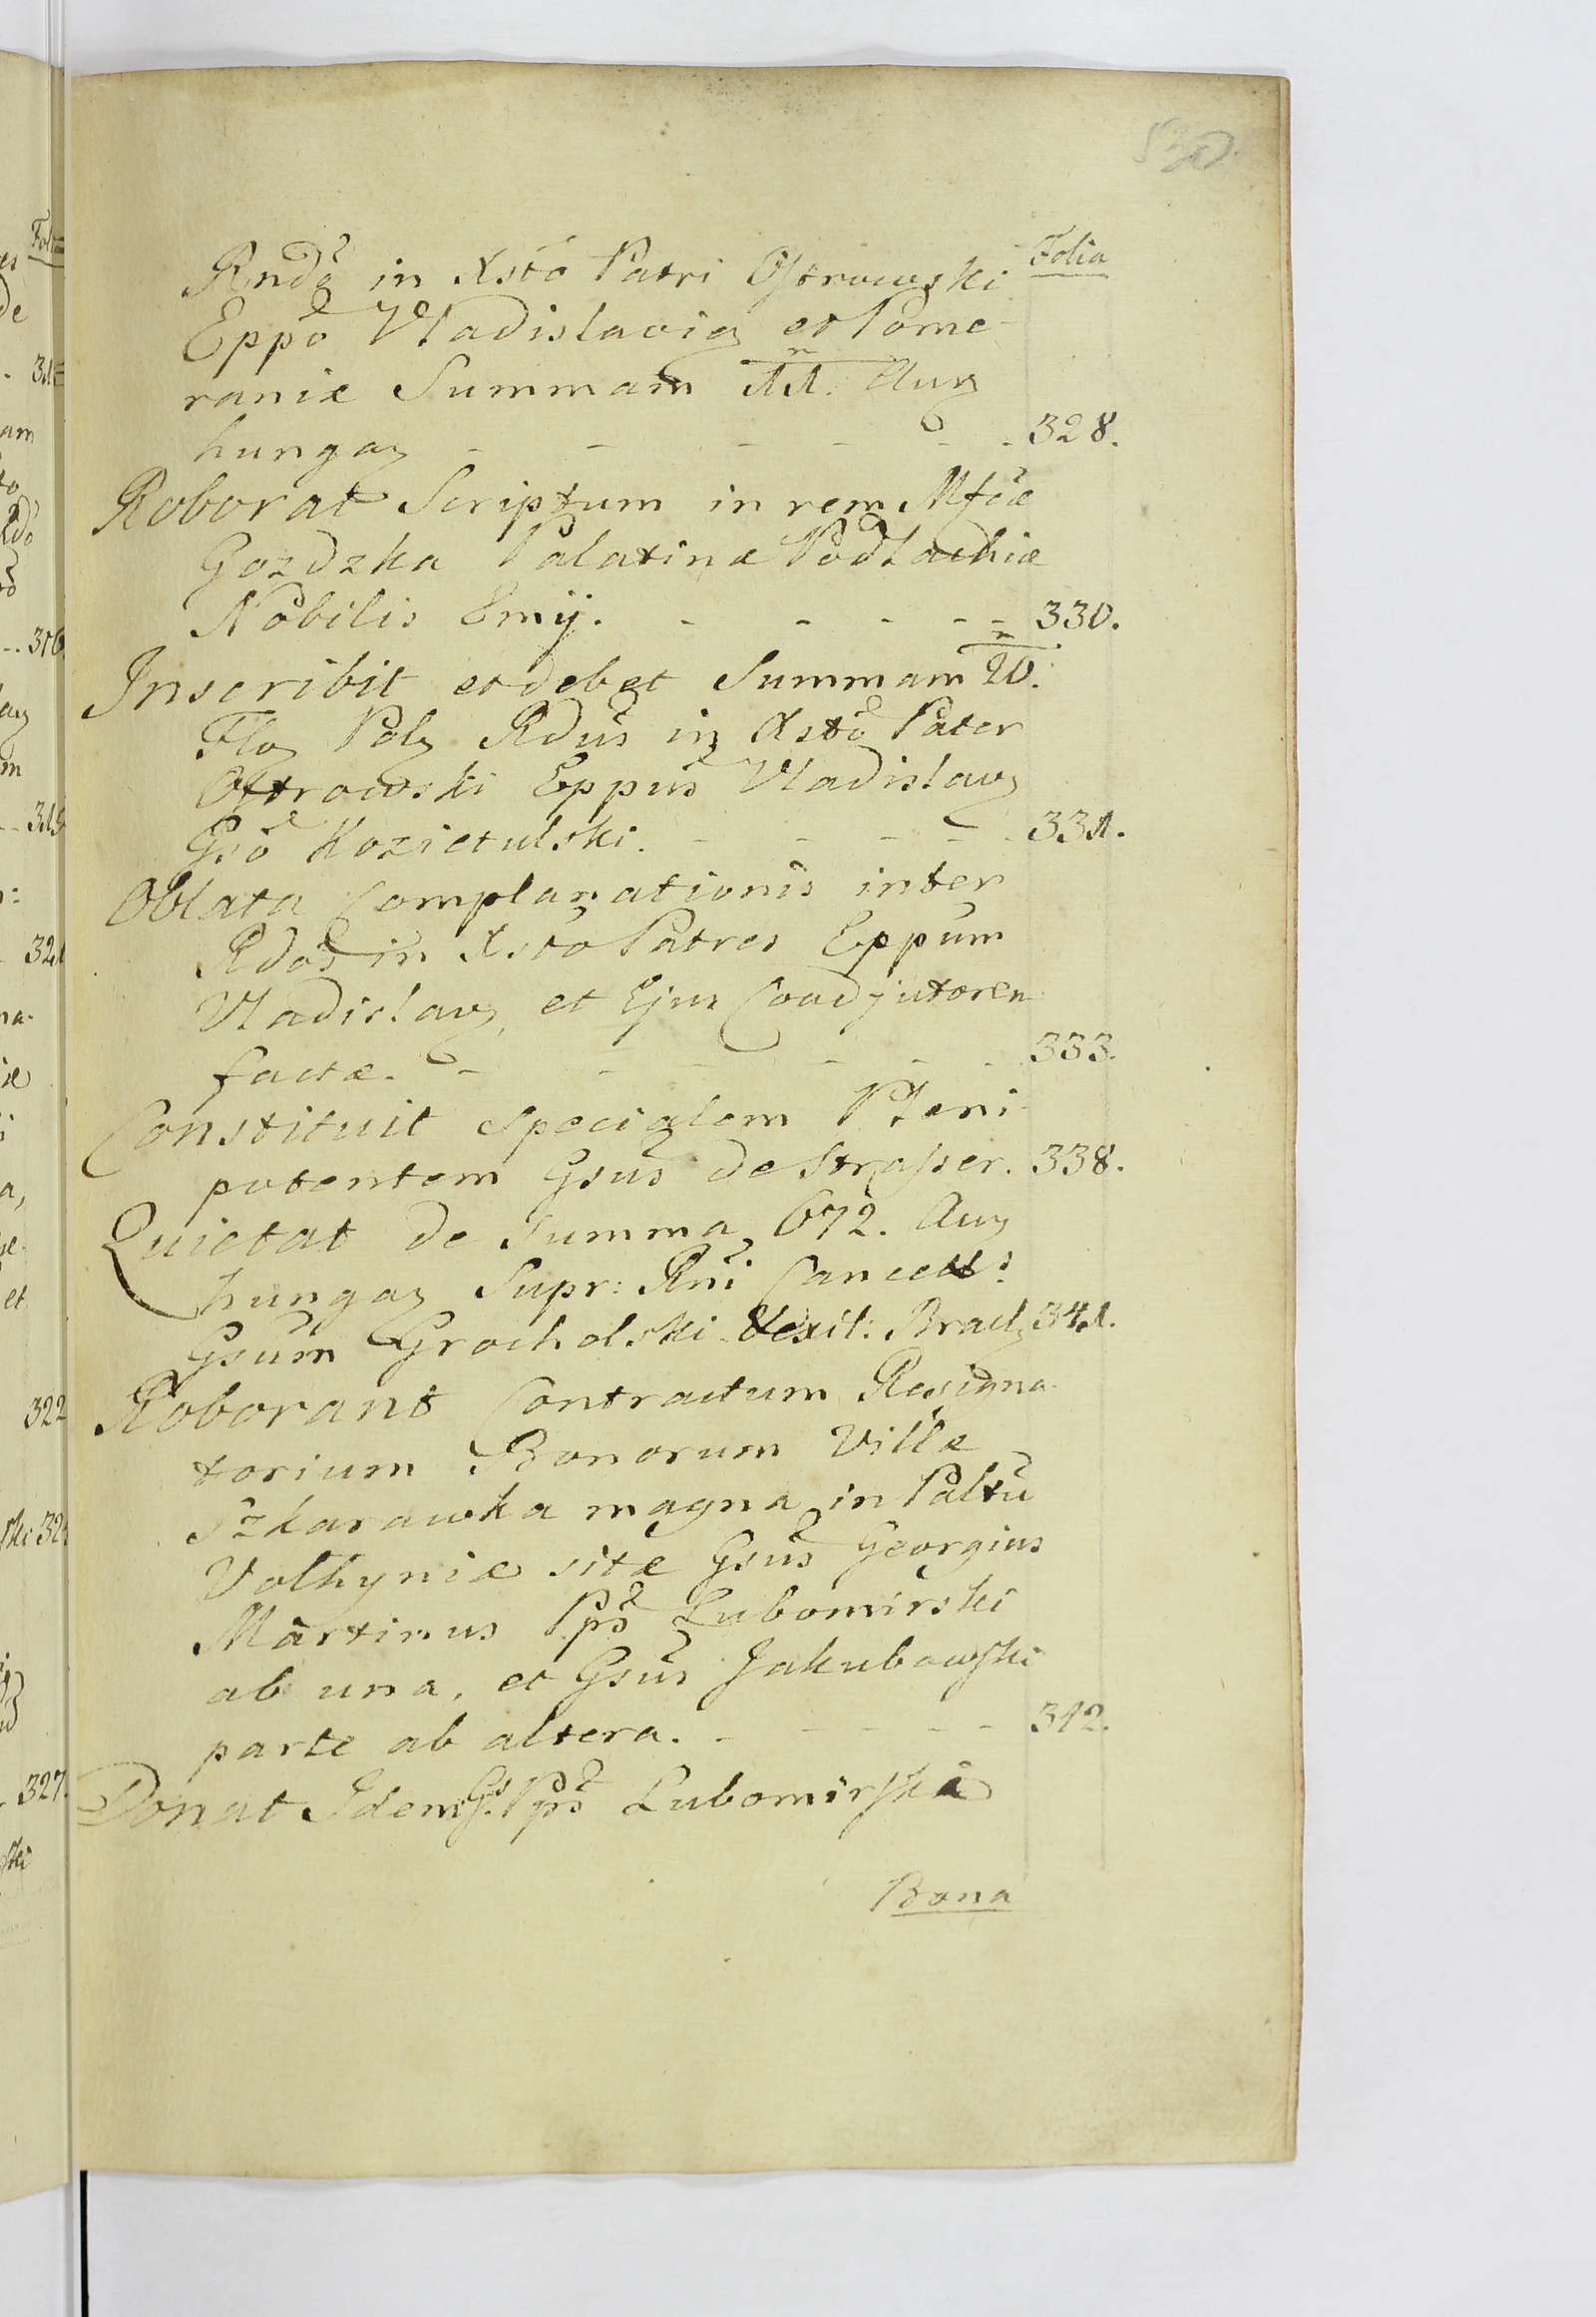 530.
Folia
Rndo in Xsto Patri Ostrowski
Eppo Vladislavię et Pome-
raniæ Summam 11. m Aur
hungar - - - - - - 328.
Roborat Scriptum in rem Mfcæ
Gozdzka Palatinæ Podlachiæ
Nobilis Emij. - - - - - 330.
Inscribit et debet Summam 20. m
Flor Pol Rdus in Xsto Pater
Ostrowski Eppus Vladislav
Gso Kozietulski. - - - - - 331.
Oblata Complanationis inter
Rdos in Xsto Patres Eppum
Vladislav, et Ejus Coadjutorem
factæ. - - - - - - 333.
Constituit specialem Pleni-
potentem Gsus de Strasser. 338.
Quietat de Summa 672. Aur
hungar Supr: Rni Cancells
Gsum Grocholski Vexil: Bracl 341.
Roborant Contractum Resigna-
torium Bonorum Villæ
Szkarawka magna in Paltu
Volhyniæ sitæ Gsus Georgius
Martinus Pps Lubomirski
ab una, et Gsus Jakubowski
parte ab altera. - - - - - 342.
Donat Idem Gs. Pps Lubomirski
Bona